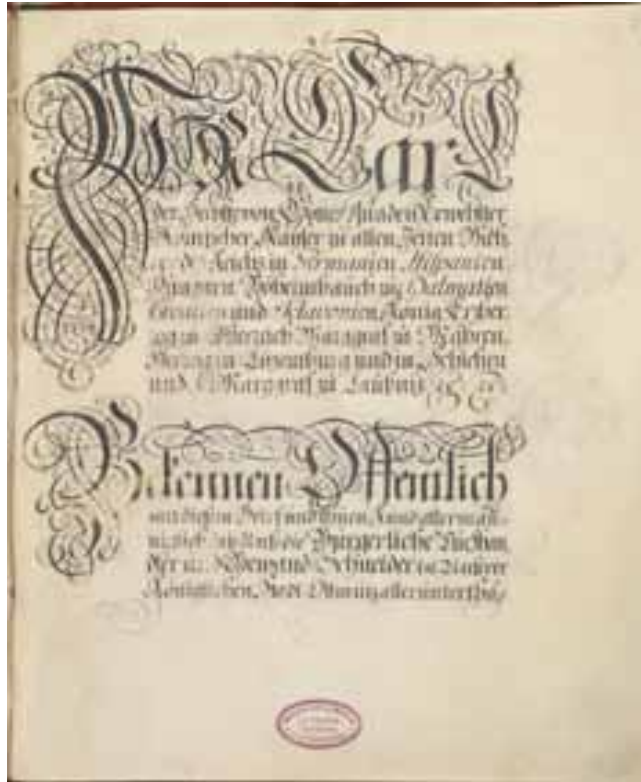 Wir Carl
der Sechste von Gottes Gnaden Erwehlter
Römischer Kayser zu allen Zeiten Meh-
rer des Reichs in Germanien, Hispanien,
Hungarn, Böheimb auch zu Dalmatien
Croatien und Sclavonien König, Ertzher-
zog zu Österreich Marggraf zu Mähren,
Herzog zu Luxemburg und in Schlesien
und Marggraf zu Laußnitz
Bekennen Offentlich
mit diesem Brief und thuen Kund allermän-
niglich die Bürgerliche Tuchma
und Schneider Unserer
Königlichen Stadt allerunterthä-